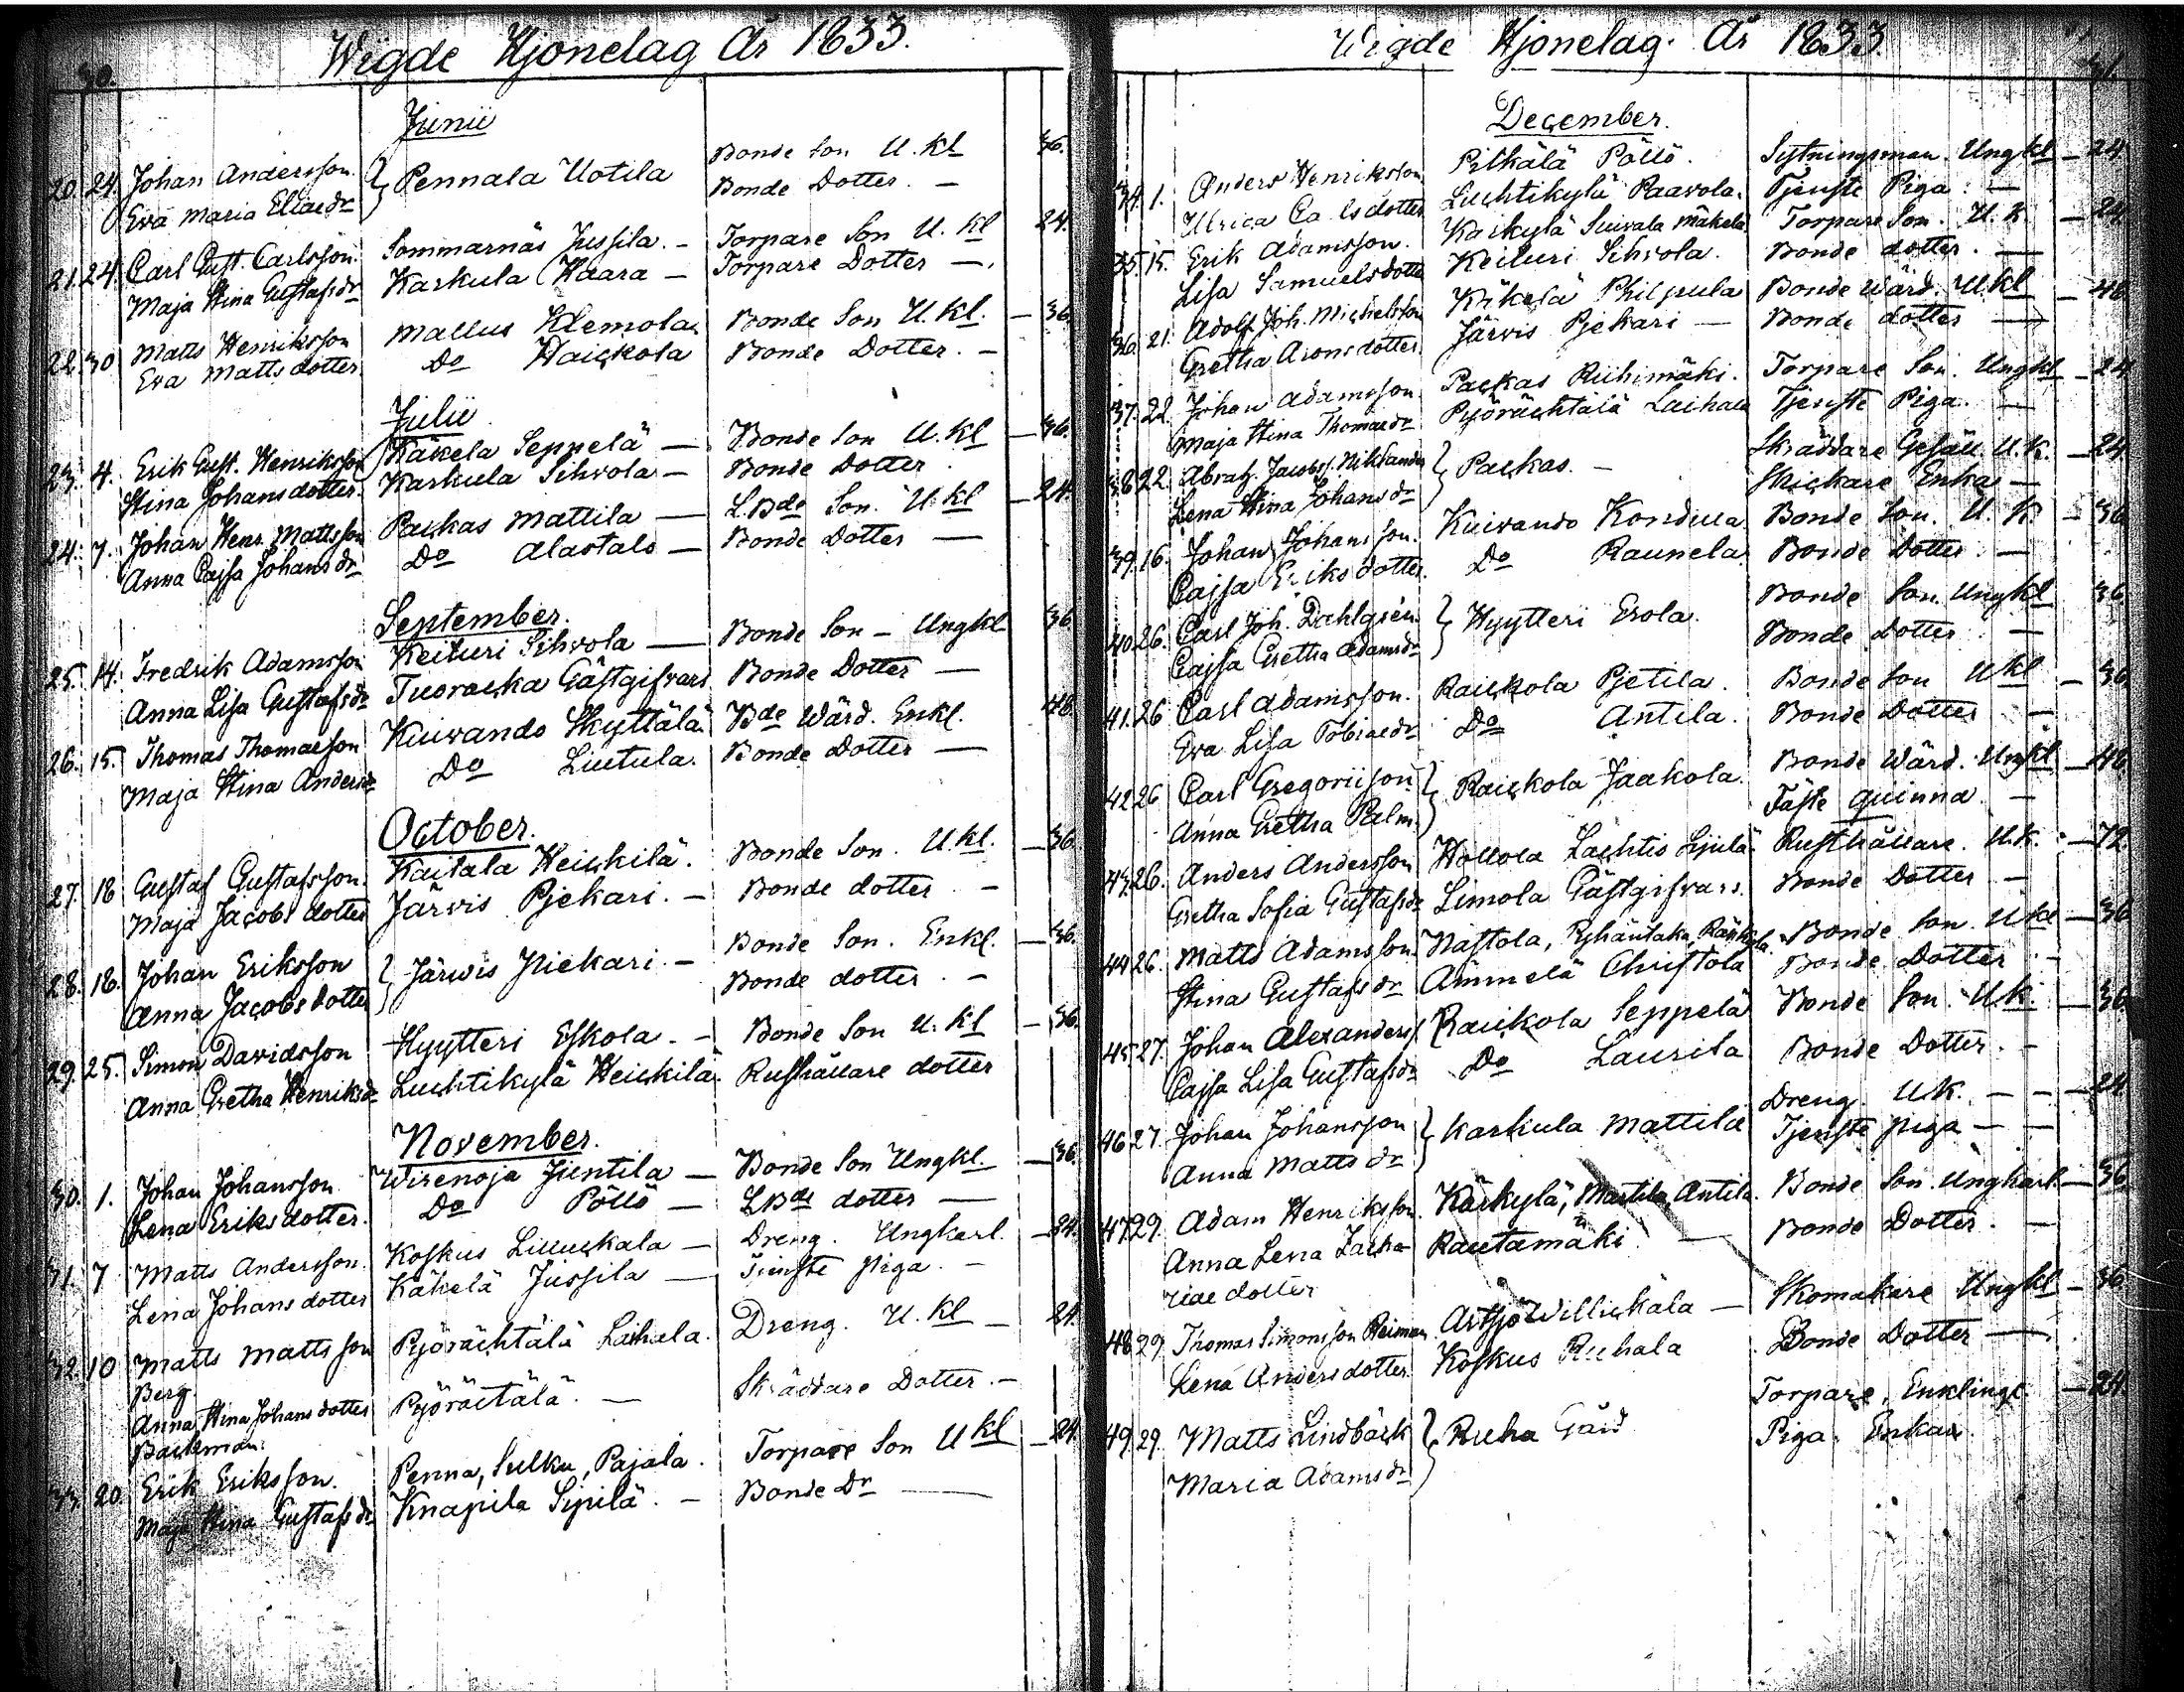 30.
Wigde Hjonelag År 1833.
Junii
20. 24. Johan Andersson } Pennala Uotila Bonde Son U.kl 36.
Eva Maria Eliaedr Bonde Dotter. —
21. 24. Carl Gust. Carlsson. Sommarnäs Jussila. – Torpare Son U. kl 24.
Maja Stina Gustafsdr Karkula Haara — Torpare Dotter —.
22. 30 Matts Henriksson Mallus Klemola Bonde Son U.kl. — 36.
Eva Matts dotter Do Haickola Bonde Dotter. –
Julii
23. 4. Erik Gust. Henriksson Käkelä Seppelä — Bonde Son U.kl — 36.
Stina Johans dotter. Karkula Sihvola — Bonde Dotter
24. 7. Johan Henr. Mattsson Packas Mattila — L.Bde Son. U.kl — 24.
Anna Cajsa Johans dr Do Alastalo — Bonde Dotter —
September.
25. 14. Fredrik Adamsson Keituri Sihvola — Bonde Son – Ungkl 36.
Anna Lisa Gustafsdr Tuoracka Gästgifvars Bonde Dotter —
26. 15. Thomas Thomasson Kuivando Skyttälä Bde Wärd. Enkl. 48.
Maja Stina Andersdr Do Liutula. Bonde Dotter —
October.
27. 18 Gustaf Gustafsson. Kaitala Heickilä. Bonde Son. U.kl. — 36
Maja Jacobs dotter Järvis Pjekari. – Bonde dotter. –
28. 18. Johan Eriksson } Järvis Piekari. – Bonde Son. Enkl. — 36.
Anna Jacobs dotter Bonde dotter. –
29. 25. Simon Davidsson Hyytteri Eskola. – Bonde Son U. kl — 36.
Anna Gretha Henriksdr Luhtikylä Heickilä. Rusthållare dotter
November.
30. 1. Johan Johansson Wirenoja Juntila — Bonde Son Ungkl. — 36.
Lena Eriks dotter. Do Pöllö — LBde dotter —
31. 7 Matts Andersson. Koskus Lilluckala — Dreng. Ungkarl. — 24.
Lena Johans dotter Käkelä Jussila — Tienste Piga. –
32. 10 Matts Matts son Pyörächtälä Laihala. Dreng. U. kl — 24.
Berg.
Anna Stina Johans dotter Pyöräctälä. — Skräddare Dotter. –
Backman.
33. 20 Erik Eriks son. Penna, Sulku, Pajala. Torpare Son U kl — 24.
Maja Stina Gustafs dr Knapila Sipilä. – Bonde Dr —
31.
Wigde Hjonelag. År 1833
December.
34. 1. Anders Henriksson Pitkälä Pöllö. Sytningsman. Ungkl — 24.
Ulrica Ca lsdotter Luchtikylä Paavola. Tjenste Piga. —
35. 15. Erik Adamsson. Koikylä Mäkelä Torpare Son. U.k — 24.
Lisa Samuelsdotter Keituri Sihvola. Bonde dotter. —
36. 21. Adolf Joh. Michelsson Käkelä Philpula Bonde Wärd. U.kl — 48
Gretha Aronsdotter. Järvis Pjekari — Bonde dotter —
37. 22. Johan Adamsson Packas Riihimäki. Torpare Son. Ungkl — 24
Maja Stina Thomaedr Pyörächtälä Laihala Tjenste Piga. —
38. 22. Abrah. Jacobss. Niklander } Packas. – Skräddare Gesäll. U.K. — 24
Lena Stina Johansdr Skickare Enka —
39. 16. Johan Johans son. Kuivando Kondula Bonde Son. U. K. — 36
Cajsa Eriks dotter. Do Raunela. Bonde Dotter. —
40. 26. Carl Joh. Dahlgrén } Hyytteri Erola. Bonde Son. Ungkl 36
Cajsa Gretha Adamsdr Bonde Dotter. —
41. 26 Carl Adamsson. Raickola Pjetila. Bonde Son Ukl — 36.
Eva Lisa Tobiaedr Do Antila. Bonde Dotter —
42. 26 Carl Gregoriison } Raickola Jaakola. Bonde Wärd. Ungkl — 48.
Anna Gretha Palm. Fäste Quinna. —
43. 26. Anders Andersson Hollola Lachtis Rusthållare. U.K. — 72.
Gretha Sofia Gustafsdr Limola Gästgifvars. Bonde Dotter —
44. 26. Matts Adamsson. Nastola, Bonde Son. U kl — 36
Stina Gustafs dr Ammelä Christola Bonde. Dotter —
45. 27. Johan Alexanders. Raickola Seppelä Bonde Son. U.k. — 36
Cajsa Lisa Gustafsdr Do Laurila Bonde Dotter. –
46. 27. Johan Johansson } Karkula Mattila Dreng. U.K. – – — 24.
Anna Matts dr Tjenste Piga — —
47. 29. Adam Henriksson. Kärkylä, Martila, Antila. Bonde Son. Ungkarl — 36
Anna Lena Zacha- Rautamäki. — Bonde Dotter. —
riae dotter
48. 29. Thomas Simonsson Reiman. Artsjö Willickala — Skomakare Ungkl — 36
Lena Anders dotter. Koskus Ruhala Bonde Dotter —
49. 29. Matts Lindbäck } Ruha Gård Torpare, Enklinge — 24.
Maria Adams dr Piga. Enkan